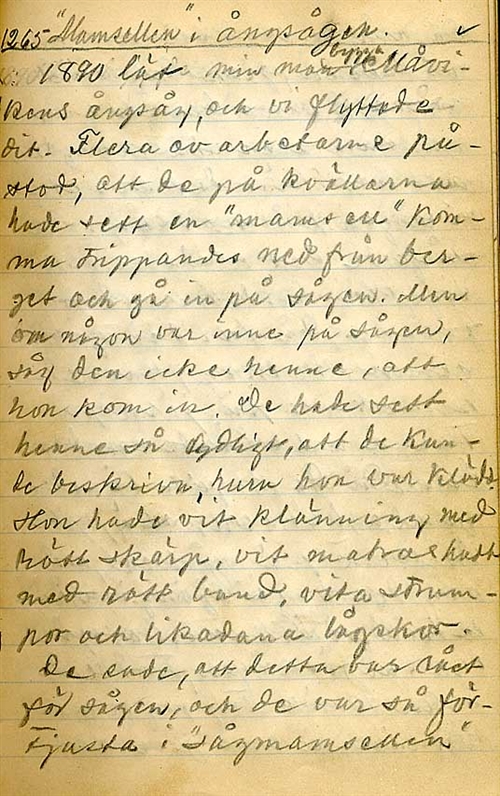 1265 "Mamsellen" i ångsågen.
1890 lät min man bygga Måvi-
kens ångsåg, och vi flyttade
dit. Flera av arbetarne på-
stod, att de på kvällarna
hade sett en "mamsell" kom-
ma trippandes ned från ber-
get och gå in på sågen. Men
om någon var inne på sågen,
såg den icke henne, att
hon kom in. De hade sett
henne så tydligt, att de kun-
de beskriva, huru hon var klädd.
Hon hade vit klänning med
rött skärp, vit matroshatt
med rött band, vita strum-
por och likadana lågskor.
De sade, att detta var rået
för sågen, och de var så för-
tjusta i "sågmamsellen"